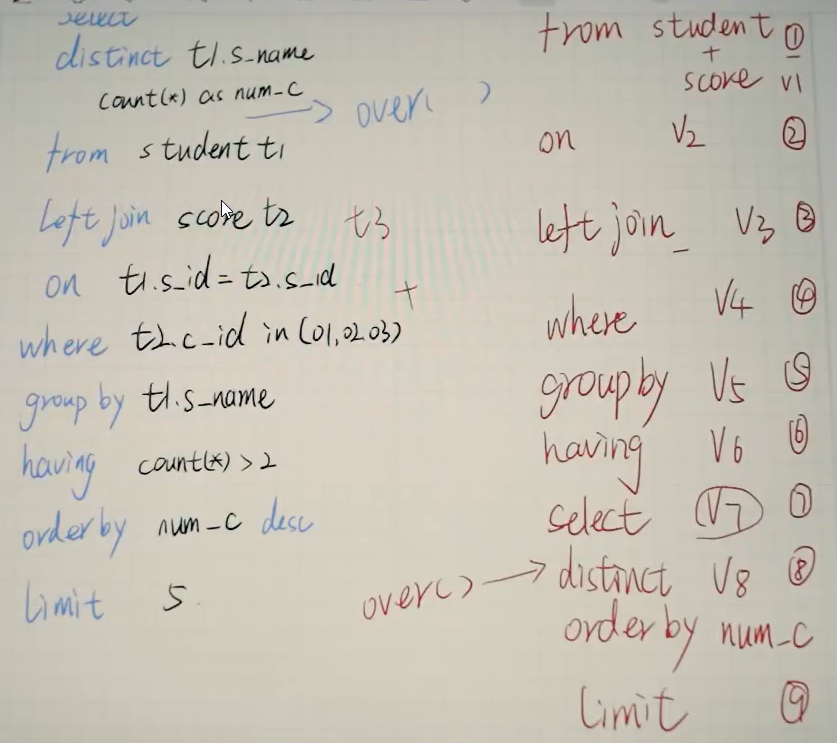 select
distinct t1.s_name
count(*) as num_c
over( )
from student t1
left join score t2 t3
on t1.s_id = t2.s_id
+
where t2.c_id in (01,02 03)
group by t1.s_name
having count(*) > 2
order by num_c desc
limit 5
from student ①
+
score v1
on V2 ②
left join V3 ③
where V4 ④
group by V5 ⑤
having V6 ⑥
select V7 ⑦
over() → distinct V8 ⑧
order by num_c
limit ⑨